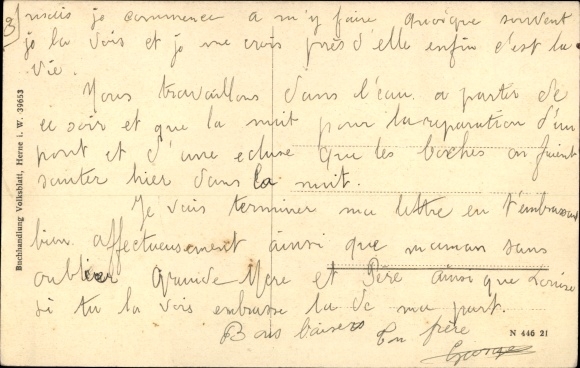 3
mais je commence a m'y faire quoique souvent
je la vois et je me crois près d'elle enfin c'est la
vie.
Nous travaillons dans l'eau a partir de
ce soir et que la nuit pour la reparation d'un
pont et d'une ecluse que les boches on faient
sauter hier dans la nuit.
Je vais terminer ma lettre en t'embrassant
bien affectueusement ainsi que maman sans
oublier Grande Mere et Père ainsi que Louise
si tu la vois embrasse la de ma part.
Bons baisers Ton frère
Georges
Buchhandlung Volksblatt, Herne i. W. 39653
N 446 21